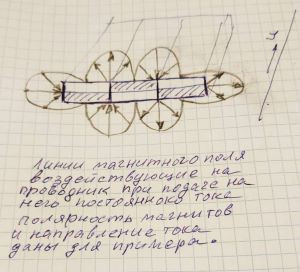 Линии магнитного поля
воздействующие на
проводник при подаче на
него постоянного тока
полярность магнитов
и направление тока
даны для примера.